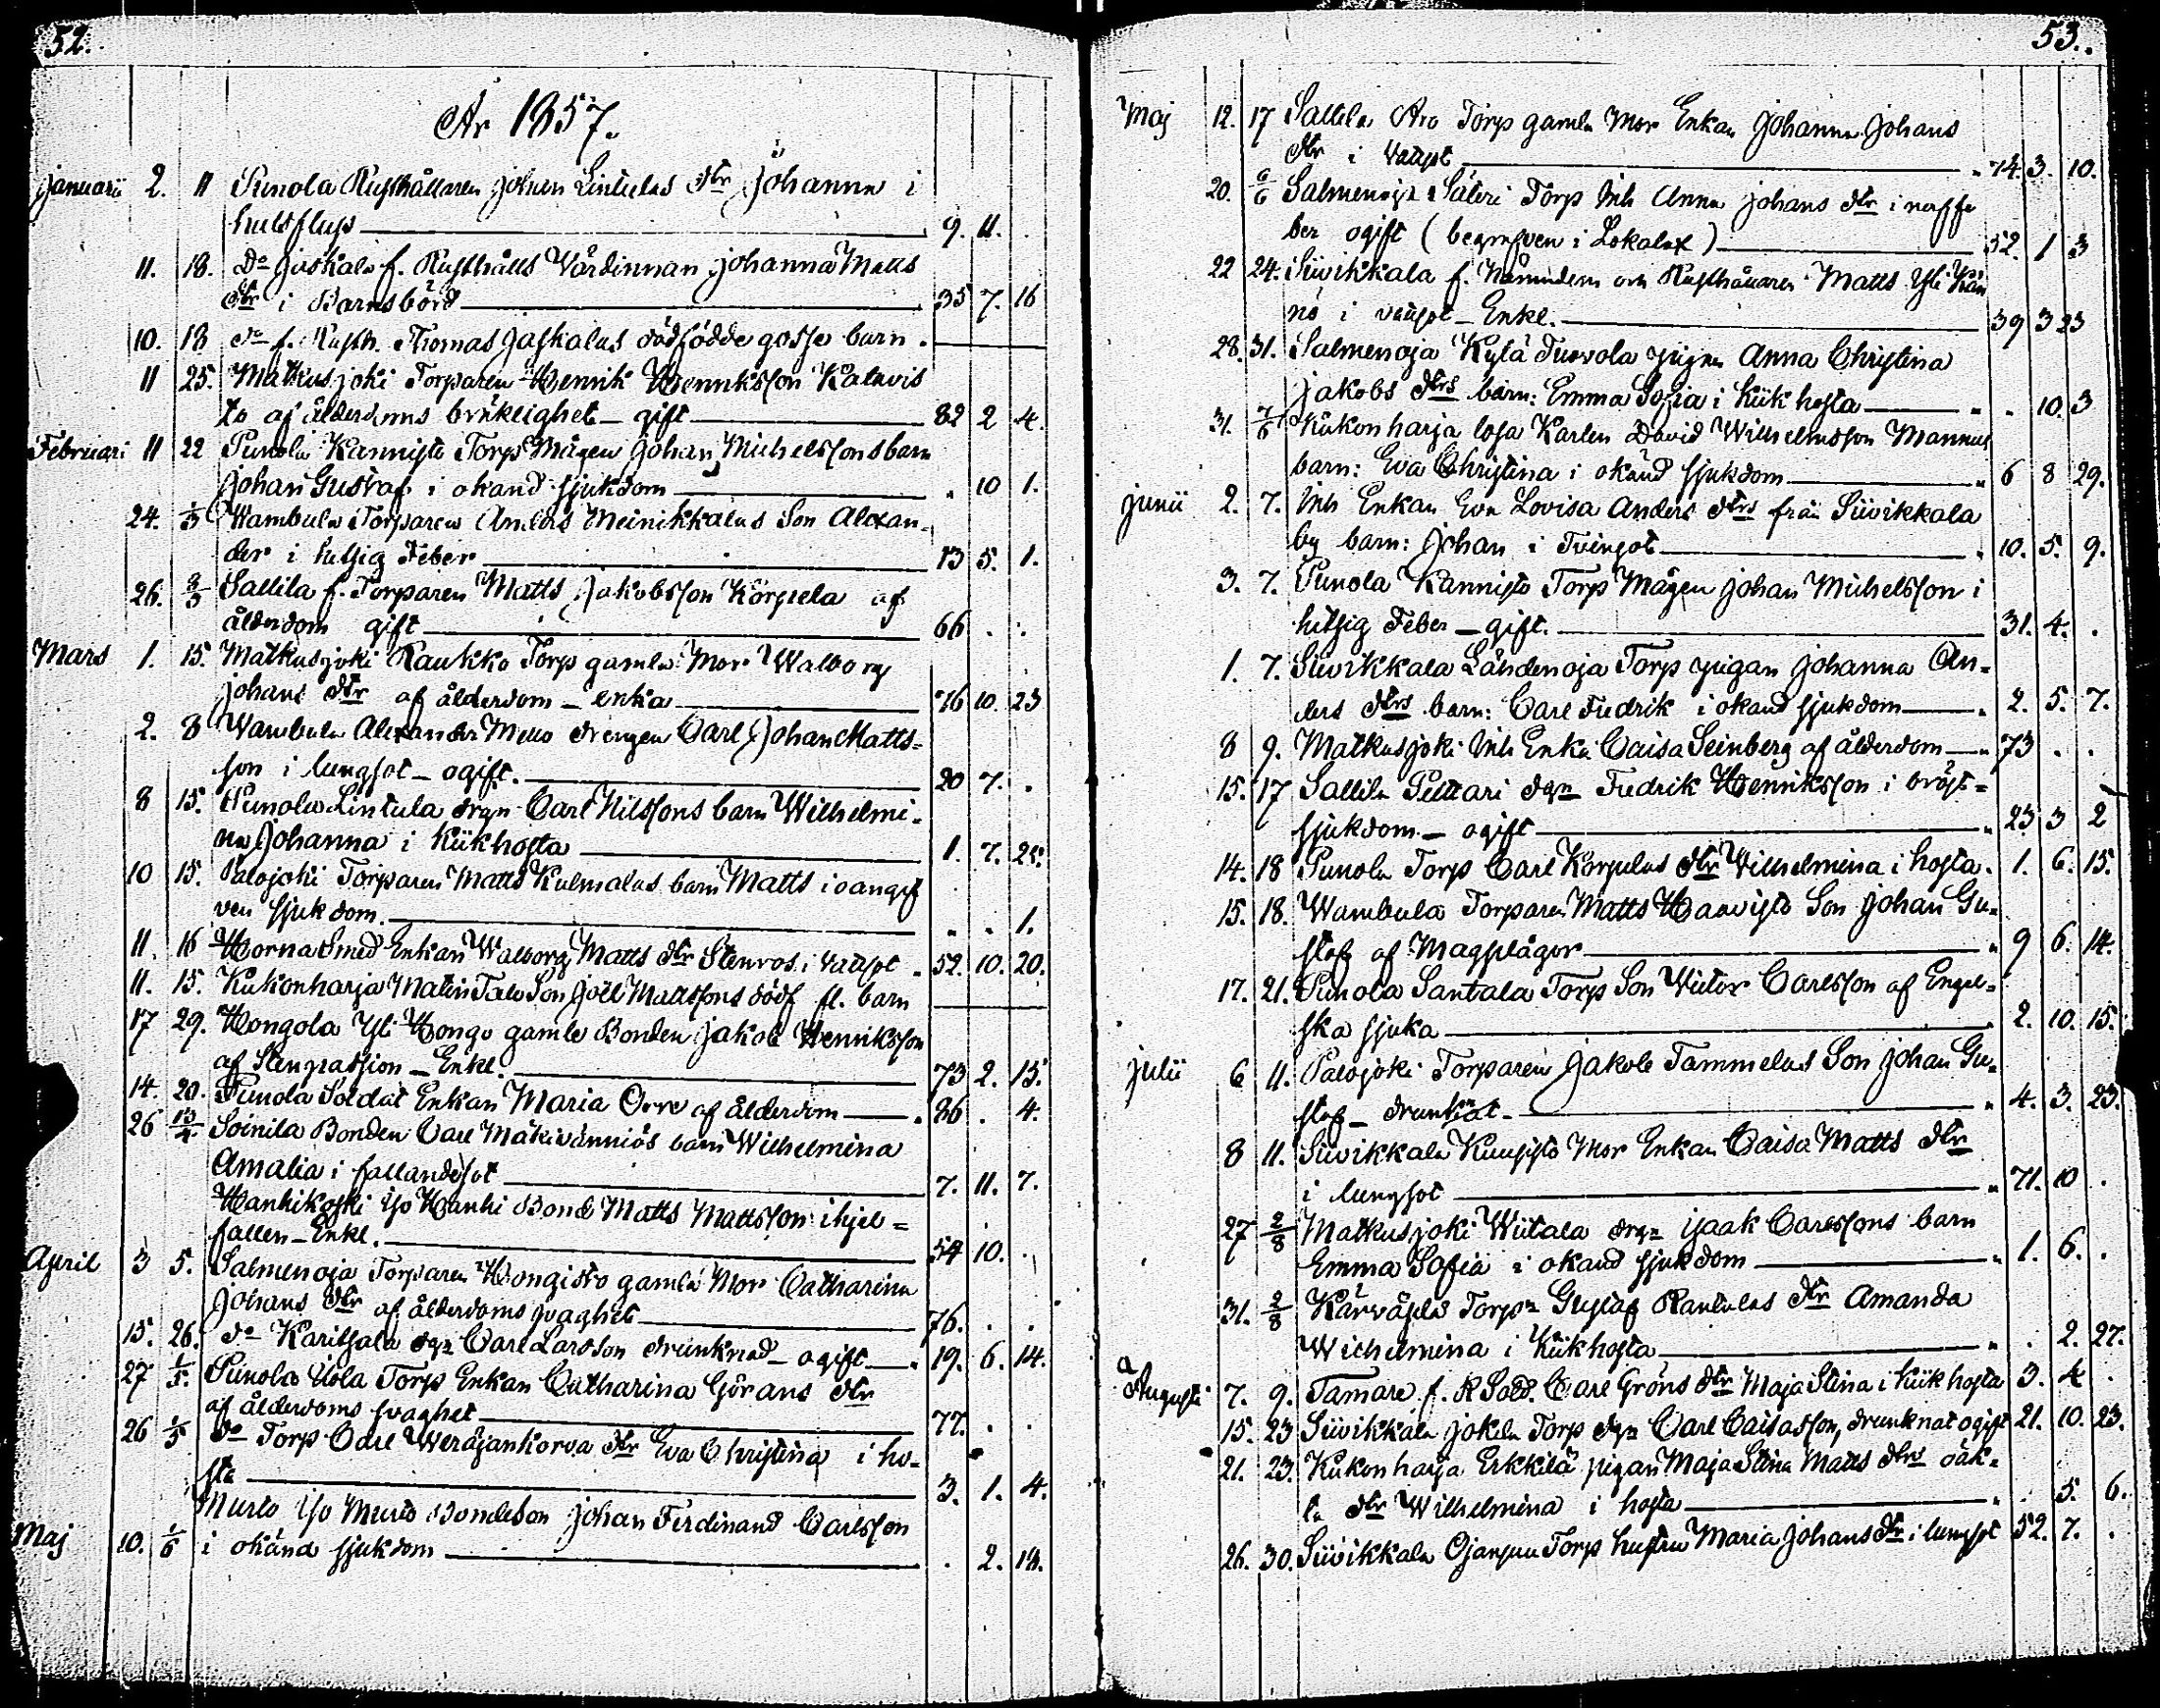 52.
År 1857.
Januarii 2. 11 Punola Rusthållaren Johan Lintulas dtr Johanna i
halsfluss 9. 11. .
11. 18. Do Jaskala f. Rusthålls Värdinnan Johanna Matts
dtr i Barnsbörd 35 7. 16
10. 18 do f. Rusth. Thomas Jaskalas dödfödde gosse barn
11 25. Matkusjoki Torparen Henrik Henriksson Katavis
to af ålderdoms bräklighet – gift 82 2 4.
Februari 11 22 Punola Kannisto Torps Mågen Johan Michelssons barn
Johan Gustaf i okänd sjukdom " 10 1.
24. 1/3 Wambula Torparens Anders Meinikkalas Son Alexan-
der i hetsig Feber 13 5. 1.
26. 8/3 Sallila f. Torparen Matts Jakobsson Korpela af
ålderdom gift 66 . .
Mars 1. 15. Matkusjoki Raukko Torp gamla Mor Walborg
Johans dtr af ålderdom – enka 76 10. 23
2. 8 Wambula Alexander Mello drengen Carl Johan Matts-
son i lungsot – ogift. 20 7. .
8 15. Punola Lintula drgn Carl Nilssons barn Wilhelmi-
na Johanna i Kikhosta 1. 7. 28.
10 15. Palojoki Torparen Matts Kulmalas barn Matts i oangif
ven sjukdom. . . 1.
11. 16 Horna Smed Enkan Walborg Matts dtr Stenros i vattsot 52. 10. 20.
11. 15. Kukonharja Matin Talo Son Joel Mattssons dödf. fl. barn
17 29. Hongola Yli Hongo gamle Bonden Jakob Henriksson
af Stenpassion – Enkl. 73 2. 15.
14. 20. Punola Soldat Enkan Maria Orre af ålderdom 86 . 4.
26 13/4 Soinila Bonden Carl Mäkivänniös barn Wilhelmina
Amalia i fallandesot 7. 11. 7.
Hanhikoski Iso Hanhi Bond Matts Mattsson ihjel-
fallen – Enkl. 54 10. .
April 3 5. Salmenoja Torparen Hongisto gamla Mor Catharina
Johans dtr af ålderdoms svaghet 76. . .
15. 26. do Karitsala dgn Carl Larsson drunknad – ogift 19. 6. 14.
27 1/5. Punola Uola Torp Enkan Catharina Görans dtr
af ålderdoms svaghet 77. . .
26 1/5 do Torp Carl Weräjänkorva dtr Eva Christina i ho-
sta 3. 1. 4.
Murto Iso Murto Bondeson Johan Ferdinand Carlsson
Maj 10. 1/6 i okänd sjukdom . 2. 14.
53.
Maj 12. 17 Sallila Aro Torp gamla Mor Enkan Johanna Johans
dtr i vattsot 74. 3. 10.
20. 6/6 Salmenoja Säteri Torp Inh Anna Johans dtr i nerffe
ber ogift (begrafven i Lokalax) 52. 1 3
22 24. Siivikkala f. Nämndem och Rusthållaren Matts Yli Kän
nö i vattsot – Enkl. 39 3 23
28. 31. Salmenoja Kylä Tuovola pigan Anna Christina
Jakobs dtrs barn: Emma Sofia i kikhosta . 10. 3
31. 7/6 Kukonharja losa Karlen David Wilhelmsson Mannus
barn: Eva Christina i okänd sjukdom 6 8 29.
Junii 2. 7. Inh Enkan Eva Lovisa Anders dtrs från Siivikkala
by barn: Johan i Tvinsot 10. 5. 9.
3. 7. Punola Kannisto Torp Mågen Johan Michelsson i
hetsig Feber – gift. 31. 4. .
1. 7. Siivikkala Lähdenoja Torp pigan Johanna An-
ders dtrs barn: Carl Fredrik i okänd sjukdom 2. 5. 7.
8 9. Matkusjoki Inh Enka Caisa Seinberg af ålderdom 73 . .
15. 17 Sallila Pettari dgn Fredrik Henriksson i bröst-
sjukdom – ogift 23 3 2
14. 18 Punola Torp Carl Korpelas dtr Wilhelmina i hosta. 1. 6. 15.
15. 18. Wambula Torparen Matts Haavisto Son Johan Gu-
staf af Magplågor 9 6. 14.
17. 21. Punola Santala Torp Son Victor Carlsson af Engel-
ska sjuka 2. 10. 15.
Julii 6 11. Palojoki Torparen Jakob Tammelas Son Johan Gu-
staf – drunknat. 4. 3. 23.
8 11. Siivikkala Kuusisto Mor Enkan Caisa Matts dtr
i lungsot 71. 10 .
27 2/8 Matkusjoki Wiitala drgn Isaak Carlssons barn
Emma Sofia i okänd sjukdom 1. 6. .
31. 2/8 Kärväjelä Torpn Gustaf Rantalas dtr Amanda
Wilhelmina i Kikhosta . 2. 27.
Augusti 7. 9. Tamare f. R Sold. Carl Gröns dtr Maja Stina i kikhosta 3. 4 .
15. 23 Siivikkala Jokela Torp dgn Carl Caisasson, drunknat ogift 21. 10. 23.
21. 23. Kukonharja Erkkilä pigan Maja Stina Matts dtrs oäk-
ta dtr Wilhelmina i hosta . 5. 6.
26. 30. Siivikkala Ojanpuu Torp hustru Maria Johans dtr i lungsot 52. 7. .